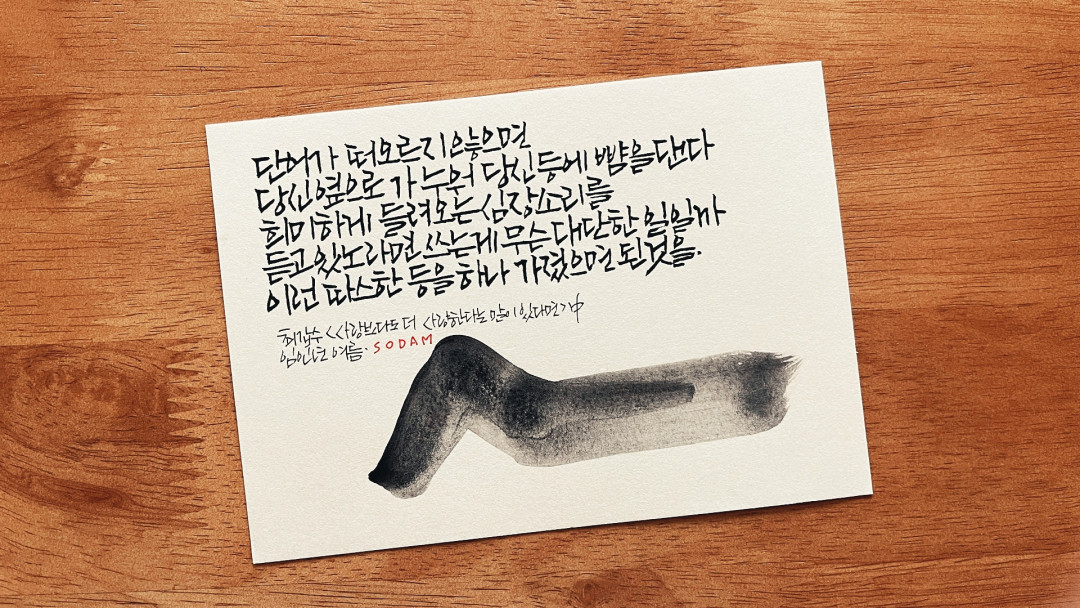 단어가 떠오르지 않으면
당신 옆으로 가 누워 당신 등에 뺨을 댄다
희미하게 들려오는 심장소리를
듣고 있노라면 쓰는게 무슨 대단한 일일까
이런 따스한 등을 하나 가졌으면 된것을.
최갑수 <사랑보다도 더 사랑한다는 말이 있다면> 中
임인년 여름. SODAM